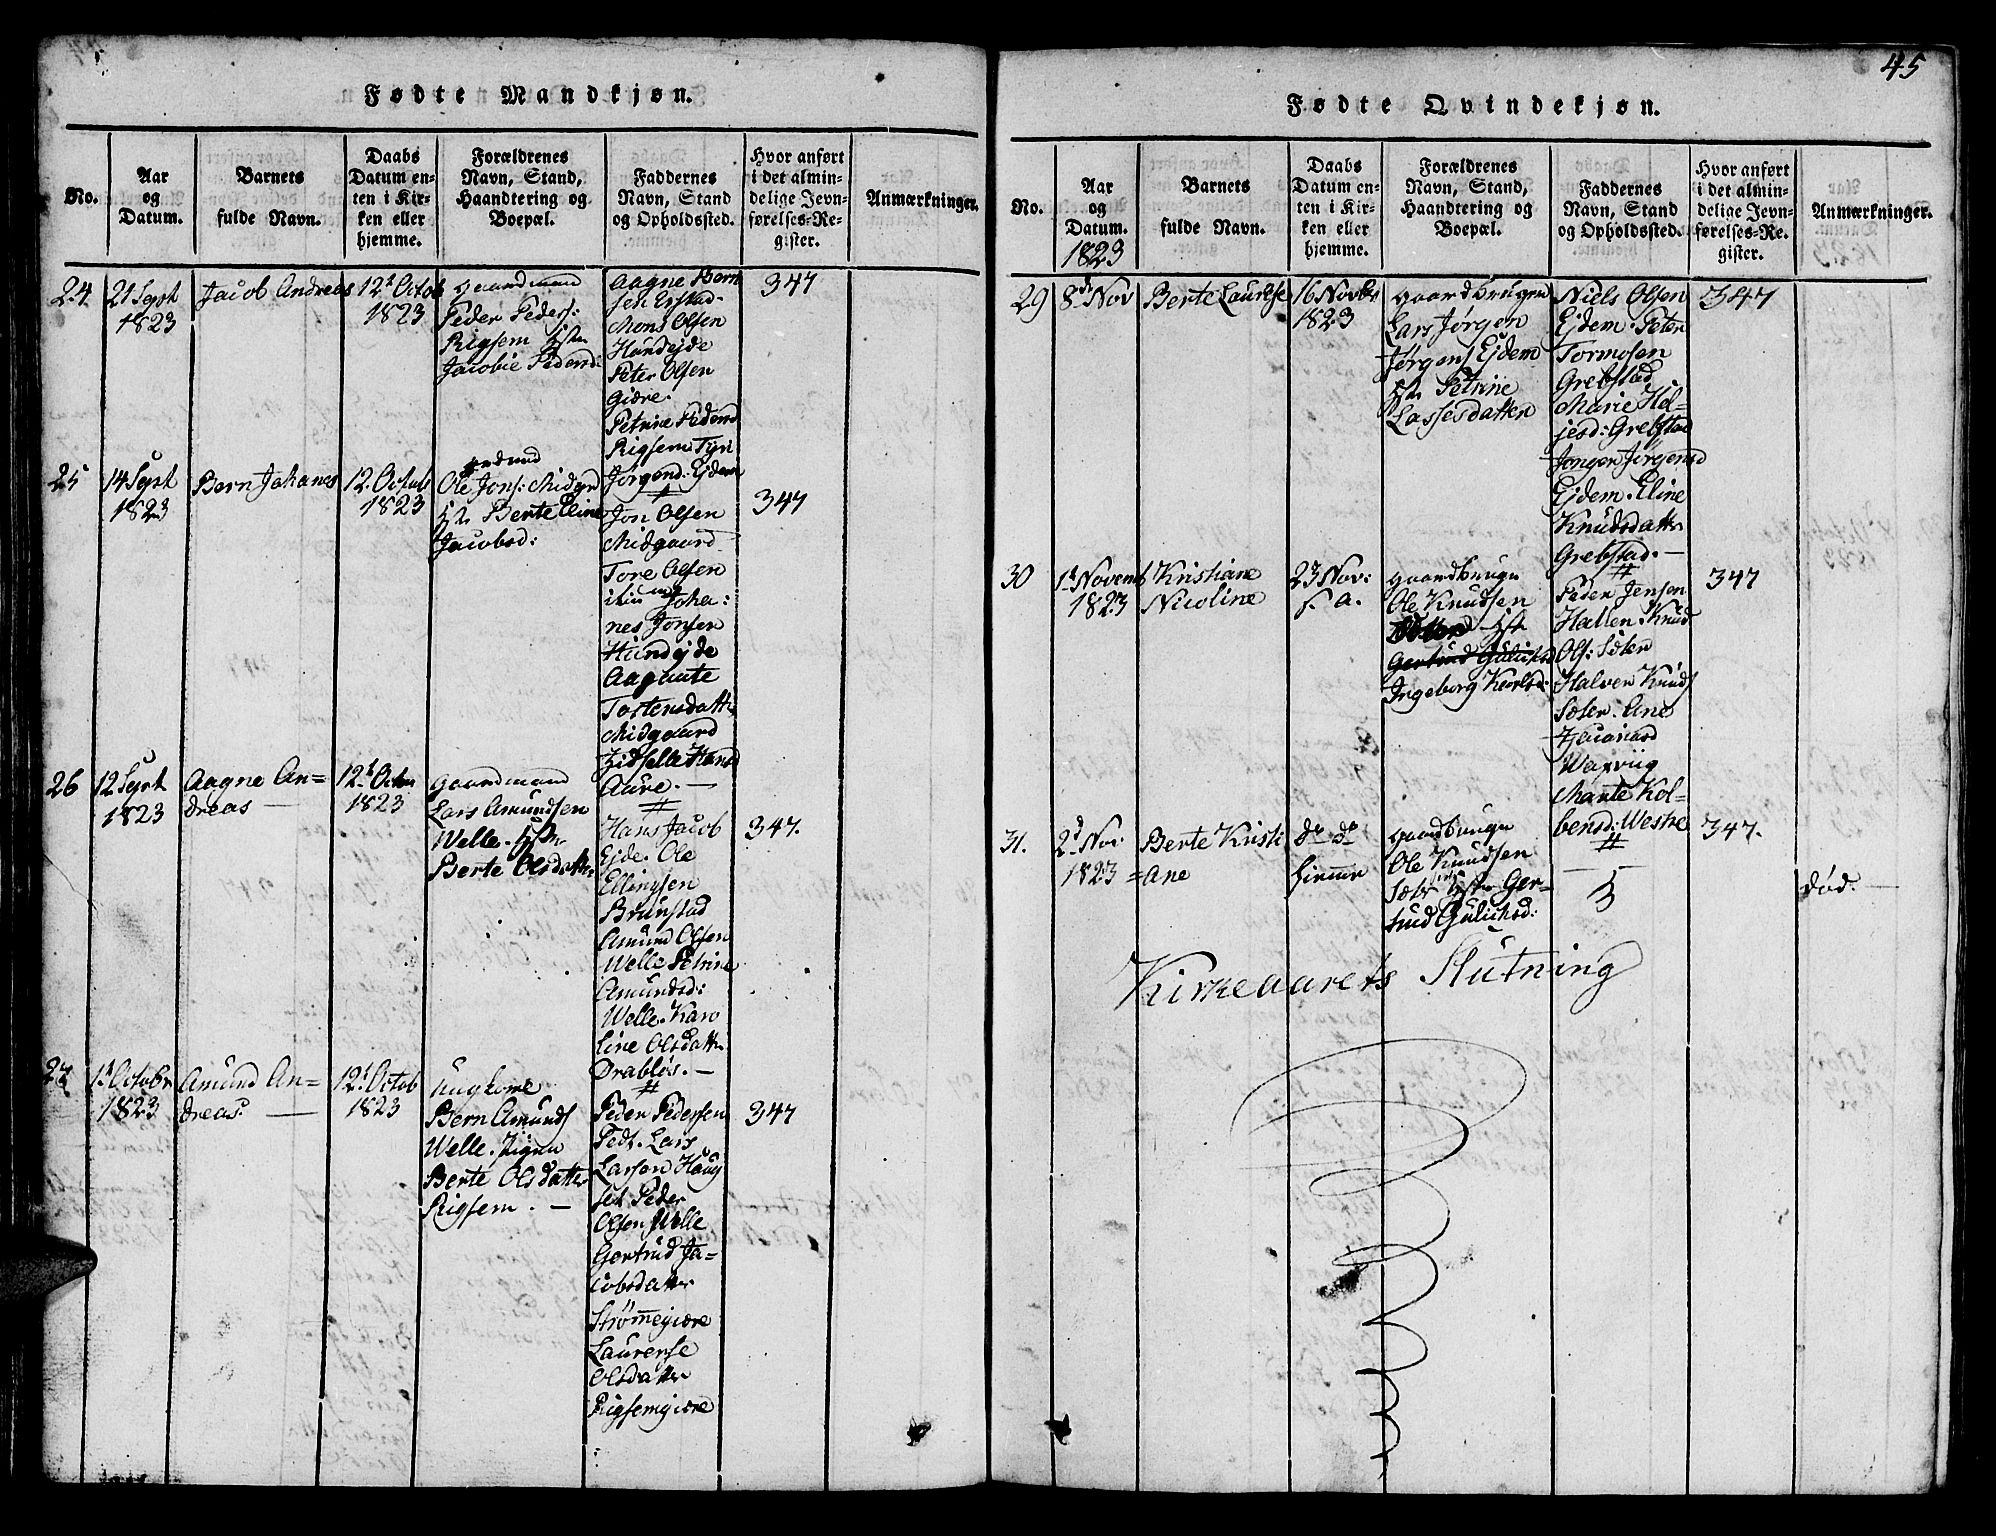 Fødte Mandkjøn.
No.
Aar
og
Datum.
Barnets
fulde Navn.
Daabs
Datum en-
ten i Kir-
ken eller
hjemme.
Forældrenes
Navn, Stand,
Haandtering og
Boepæl.
Faddernes
Navn, Stand
og Opholdssted.
Hvor anført
i det almin-
delige Jevn-
førelses-Re-
gister.
Anmærkninger.
24.
21 Sept
1823
Jacob Andreas
12t Octob
1823
gaardmand
Peder Peders:
Rigsem
Jacobie Pedersd:
Aagne Bern
sen Erstad.
Mons Olsen
Hundejde
Peter Olsen
Giære.
Petrine Pedersd
Rigsem Tyri
Jørgensd: Ejdem
347
25
14 Sept
1823
Bern Johanes
12 Octob
1823
Ole Jons: Midgrd
Berte Eline
Jacobsd:
Jon Olsen
Midgaard
Tore Olsen
Joha:
nes Jonsen
Hundejde
Aagaate
Tostensdatte
Midgaard
Zidselle Hansd
Aure. —
347
26
12 Sept
1823
Aagne An=
dreas —
12t Octbr
1823
gaardmand
Lars Amundsen
Welle.
Berte Olsdatter
Hans Jacob
Ejde. Ole
Ellingsen
Brunstad
Amund Olsen
Welle Petrine
Amundsd:
Welle. Karo
line Olsdatter
Drabløs. —
347.
27
1t Octobr
1823
Amund An=
dreas —
12t Octob
1823
Ungkone
Bern Amunds
Welle. Pigen
Berte Olsdatter
Rigsem. —
Peder Pedersen
Tedt. Lars
Larsen Haug
set Peder
Olsen Welle
Gertrud Ja=
cobsdatter
Strømmegiære
Laurense
Olsdatter
Rigsemgiære
347
45
Fødte Qvindekjøn.
No.
Aar
og
Datum.
1823
Barnets
fulde Navn.
Daabs
Datum en-
ten i Kir-
ken eller
hjemme.
Forældrenes
Navn, Stand,
Haandtering og
Boepæl.
Faddernes
Navn, Stand
og Opholdssted.
Hvor anført
i det almin-
delige Jevn-
førelses-Re-
gister.
Anmærkninger.
29
8de Nov
Berte Laurense
16 Novbr
1823
gaardbruger
Lars Jørgen
Jørgens Ejdem
Petrine
Lassesdatter
Niels Olsen
Ejdem. Peter
Tormosen
Grebstad
Marie Hol=
jesd: Grebstad
Jonger Jørgensd
Ejdem. Eline
Knudsdatter
Grebstad. —
347
30
1t Novemb
1823
Kristiane
Nicoline
23 Nov:
f. a.
gaardbruger
Ole Knudsen
Gertrud Gulichsd
Ingeborg Karlsd:
Peder Jensen
Hallen. Knud
Ols: Soter
Halver Knuds
Soter. Ane
Waxvüg
Marte Kol=
bensd: Westre
347
31.
2d Nov:
1823
Berte Kristi
=ane
do do
hiemme
gaardbruger
Ole Knudsen
Soter Ger=
trud Gulichsd:
347.
død. —
Kirkeaarets Slutning